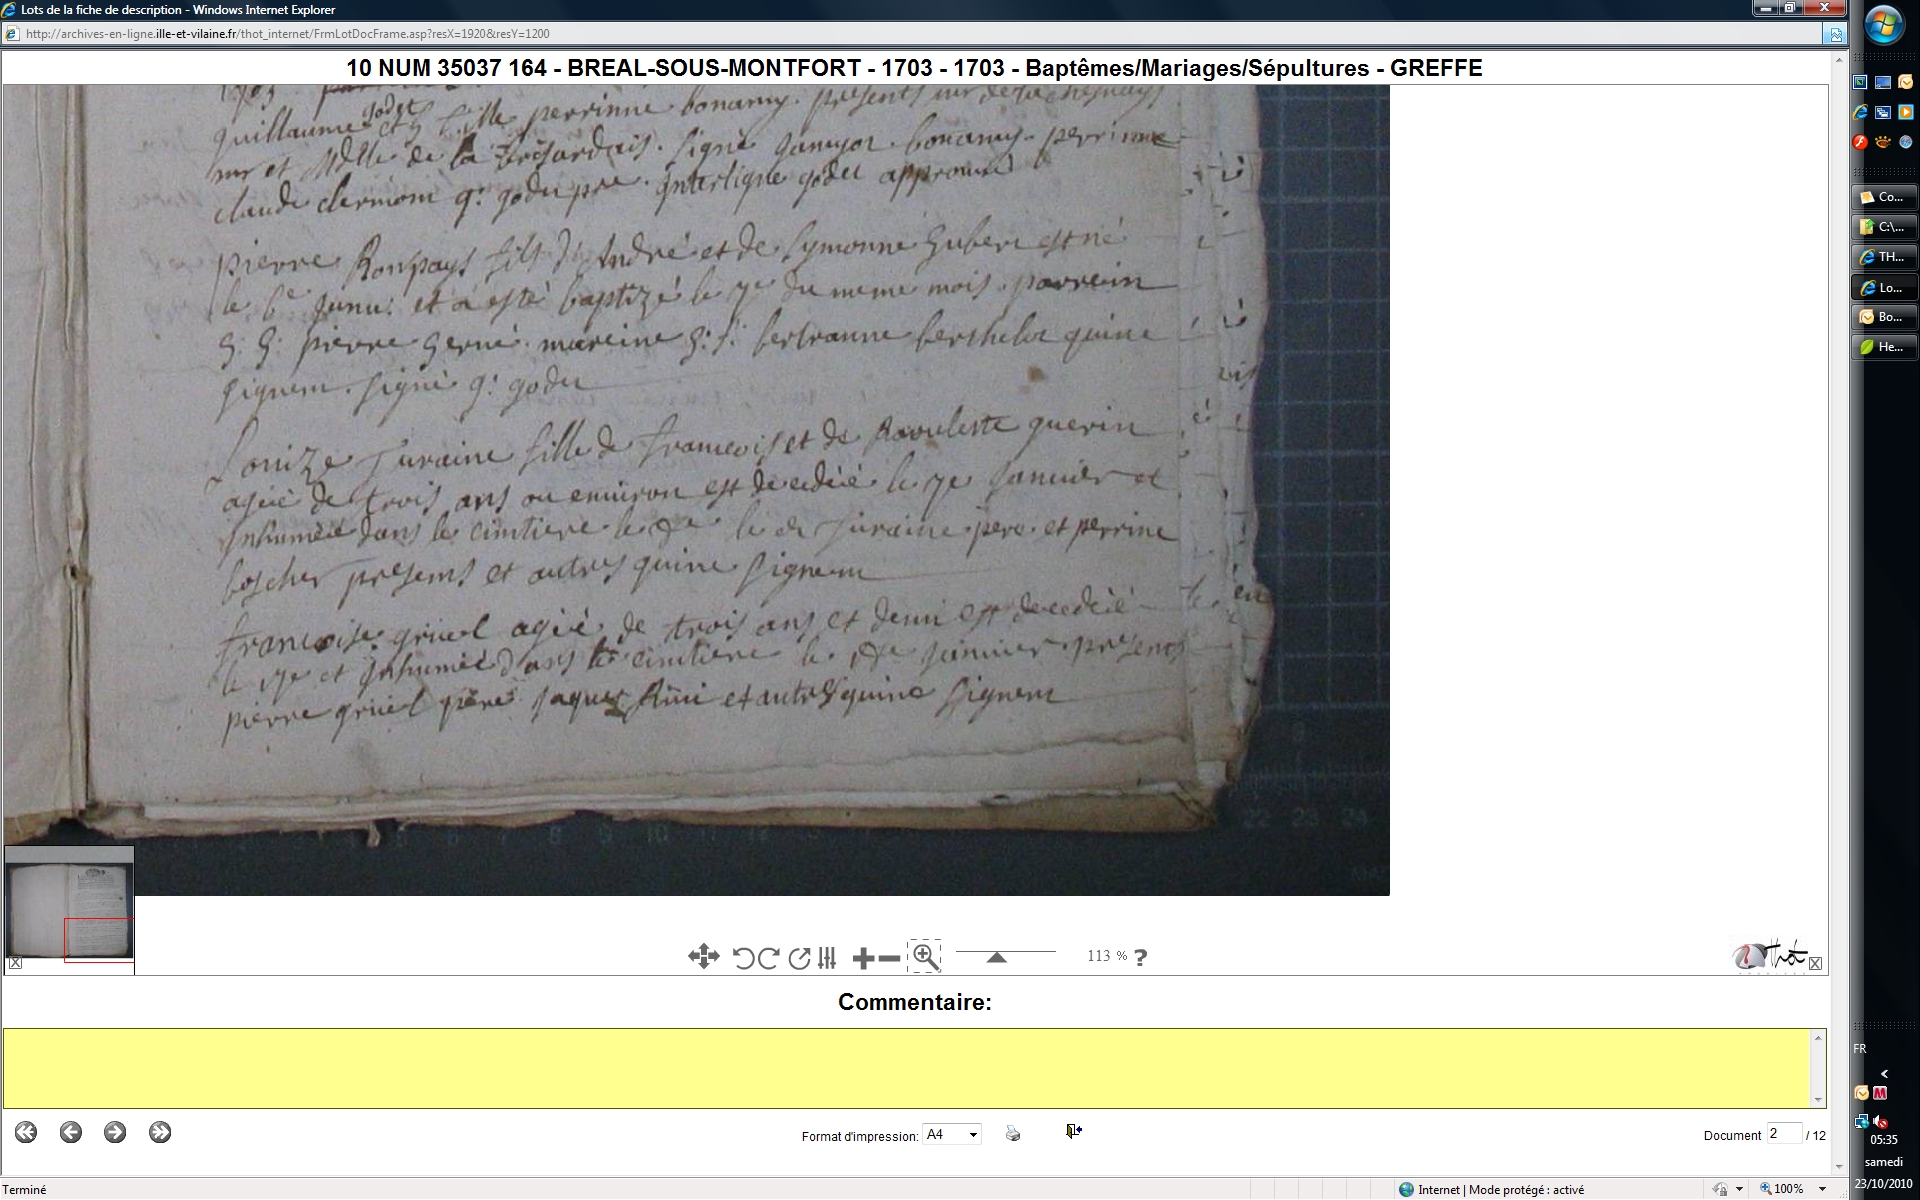 Lots de la fiche de description - Windows Internet Explorer
http://archives-en-ligne.ille-et-vilaine.fr/thot_internet/FrmLotDocFrame.asp?resX=1920&resY=1200
10 NUM 35037 164 - BREAL-SOUS-MONTFORT - 1703 - 1703 - Baptêmes/Mariages/Sépultures - GREFFE
1703
godet
guillaume et h fille perrinne bonamy. presents
mr et Mlle de la signé bonamy. perrinne
claude clermont g: godet pre. interligne godet approuvé
pierre Ronpays fils d'André et de Symonne hubert est né
le 6e Janu: et a esté baptizé le 7e du meme mois. parrein
h: h: pierre herué. mareine h: f: bertranne berthelot qui ne
signent. signé g: godet
Louize Juraine fille de francois et de Raoulette guerin
agée de trois ans ou enuiron est decedée le 7e Januier et
Inhumée dans le cimtiere le 8e le dt Juraine pere. et perrine
boscher presents et autres qui ne signent
francoise gruel agée de trois ans et demi est decedée
le 17e et Inhumée dans le cimtiere le 18e januier. presents
pierre gruel pere Jaques et autres qui ne signent
22 23 24
113 % ?
Thot
Commentaire:
Format d'impression: A4
Document 2 / 12
Terminé
Internet | Mode protégé : activé
100%
Co...
C:\...
TH...
Lo...
Bo...
He...
FR
05:35
samedi
23/10/2010